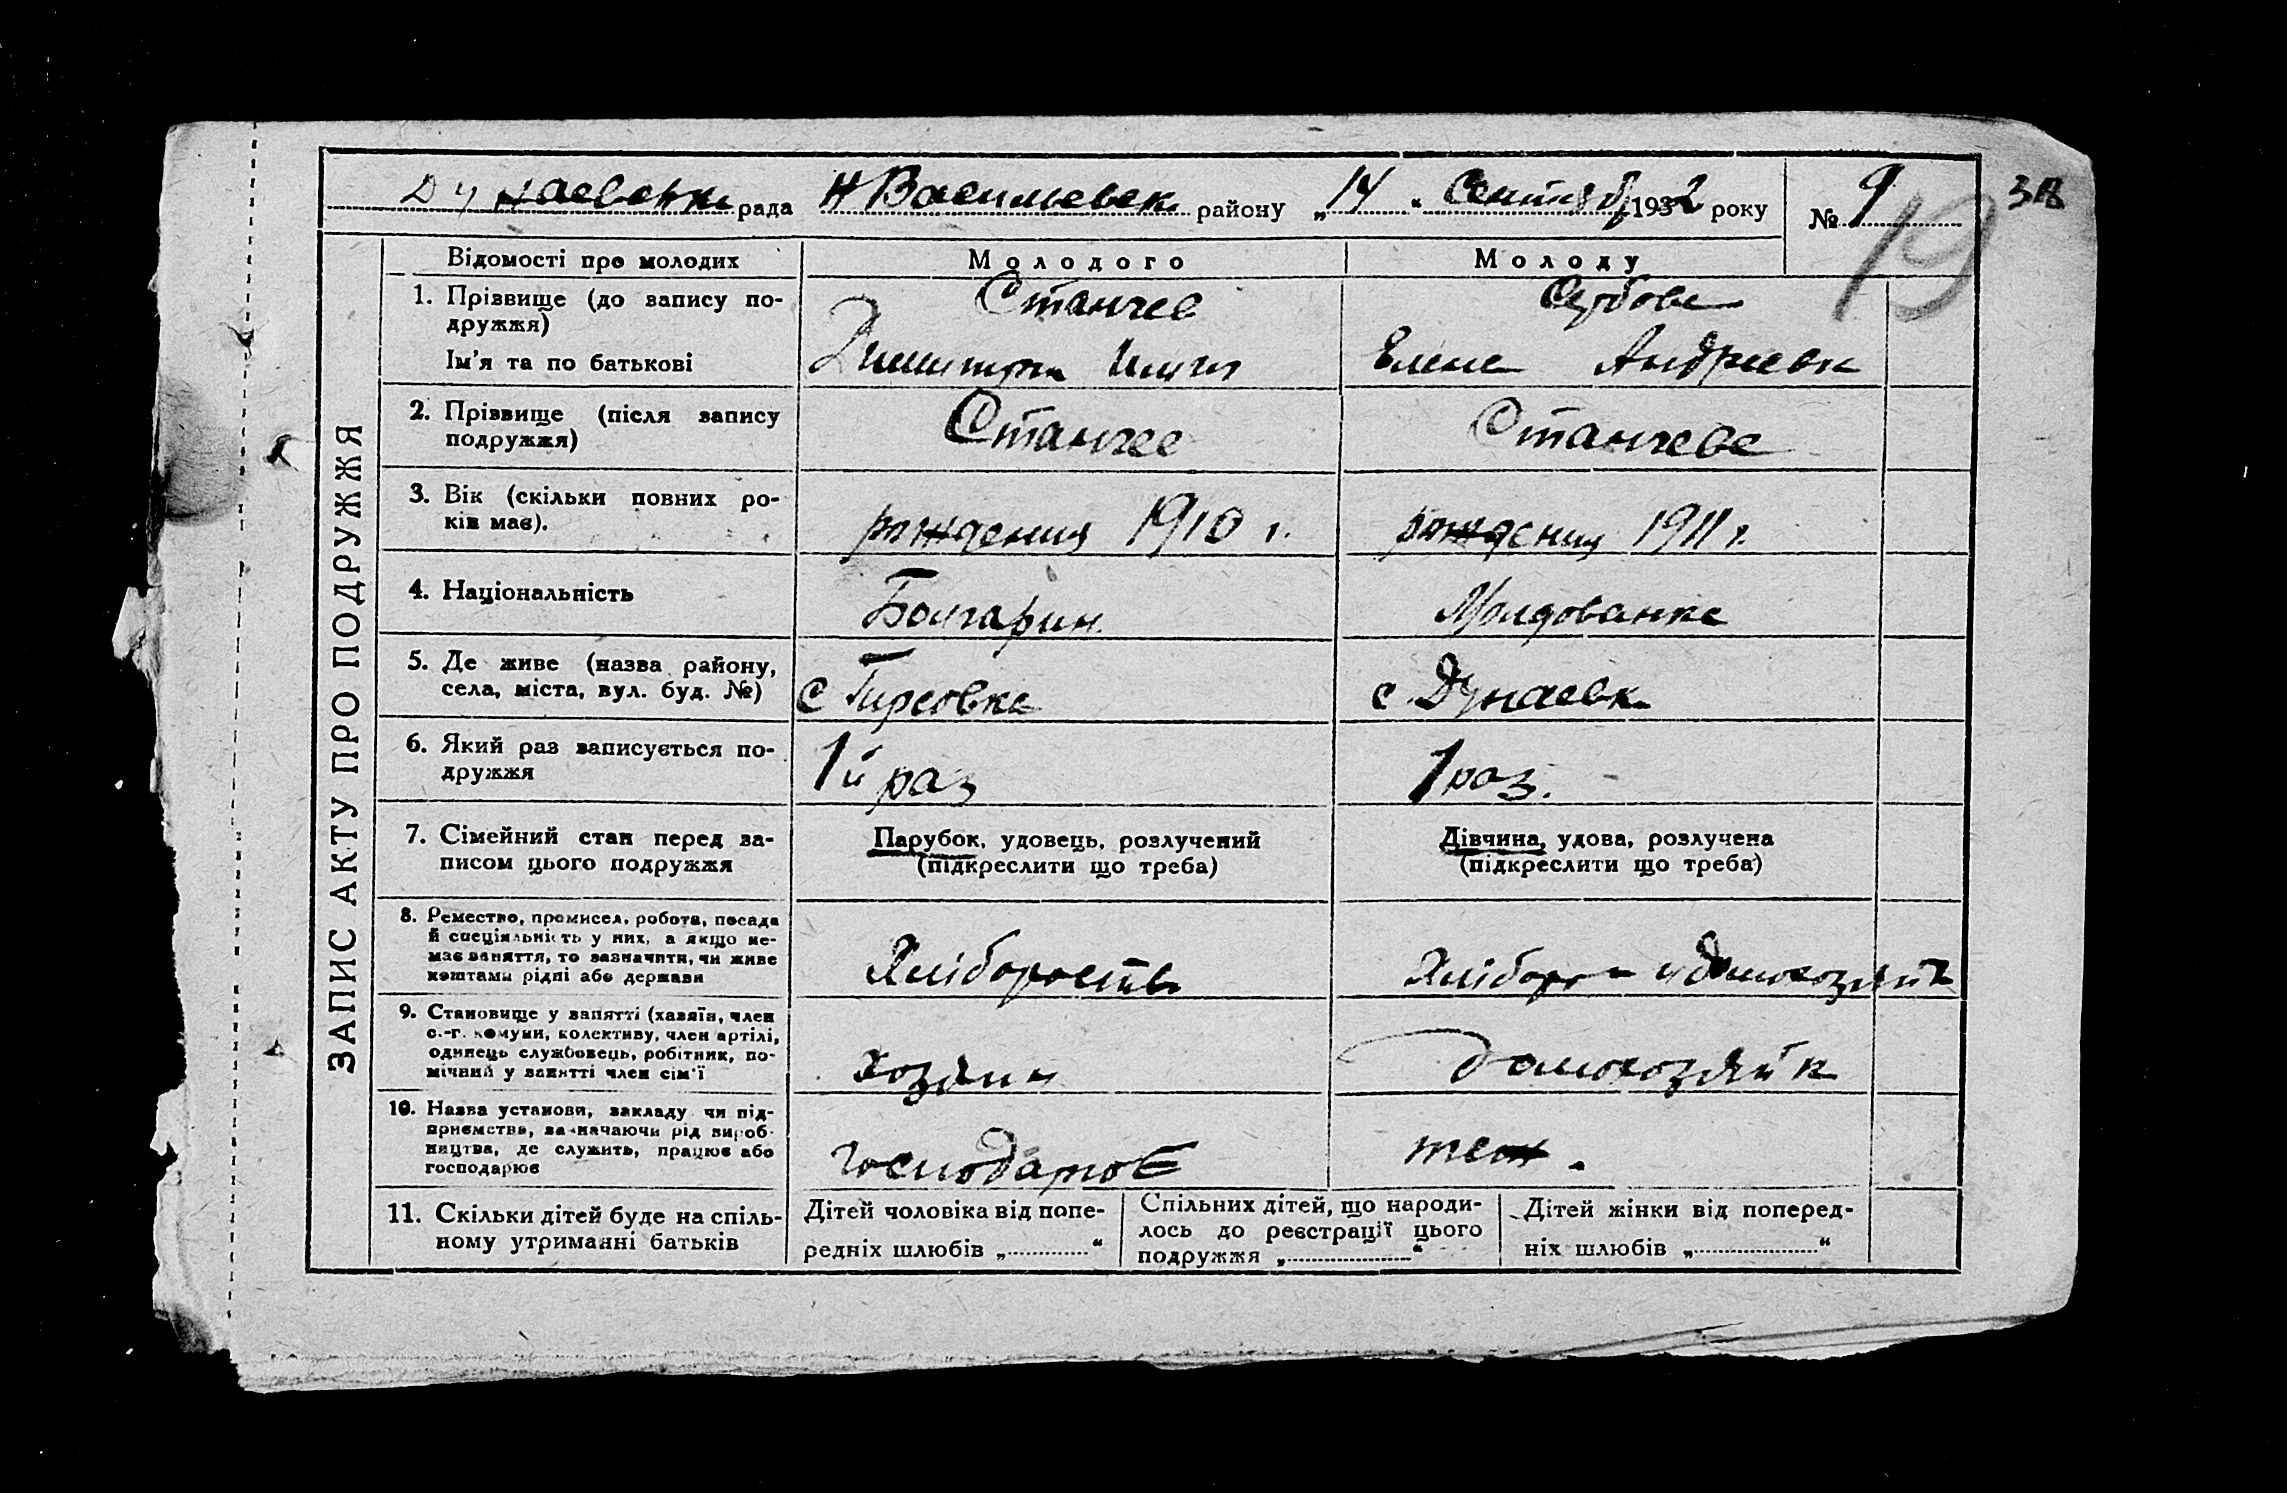 Дунаевська рада Н Васильевск. району „14“ Сентябр 1932 року № 9
19
Відомості про молодих Молодого Молоду
1. Прізвище (до запису по-
дружжя) Станчев Сербова
Ім'я та по батькові Димитри Елена Андріевн
2. Прізвище (після запису
подружжя) Станчев Станчева
3. Вік (скільки повних ро-
ків має). рождения 1910 г. рождения 1911 г.
4. Національність Болгарин Молдованка
5. Де живе (назва району,
села, міста, вул. буд. №) с Гирсовка с Дунаевк
6. Який раз записується по-
дружжя 1й раз 1 раз.
7. Сімейний стан перед за-
писом цього подружжя
Парубок, удовець, розлучений
(підкреслити що треба)
Дівчина, удова, розлучена
(підкреслити що треба)
8. Ремество, промисел, робота, посада
й спеціяльність у них, а якщо не-
має заняття, то зазначити, чи живе
коштами рідні або держави
Хліборобств Хлібороб и домохозяйк
9. Становище у занятті (хазяїн, член
с.-г. комуни, колективу, член артілі,
одинець службовець, робітник, по-
мічний у занятті член сім'ї
хозяин домохозяйк
10. Назва установи, закладу чи під-
приємства, зазначаючи рід вироб-
ництва, де служить, працює або
господарює
господарює теж.
11. Скільки дітей буде на спіль-
ному утриманні батьків
Дітей чоловіка від попе-
редніх шлюбів „ “
Спільних дітей, що народи-
лось до реєстрації цього
подружжя „ “
Дітей жінки від поперед-
ніх шлюбів „ “
ЗАПИС АКТУ ПРО ПОДРУЖЖЯ